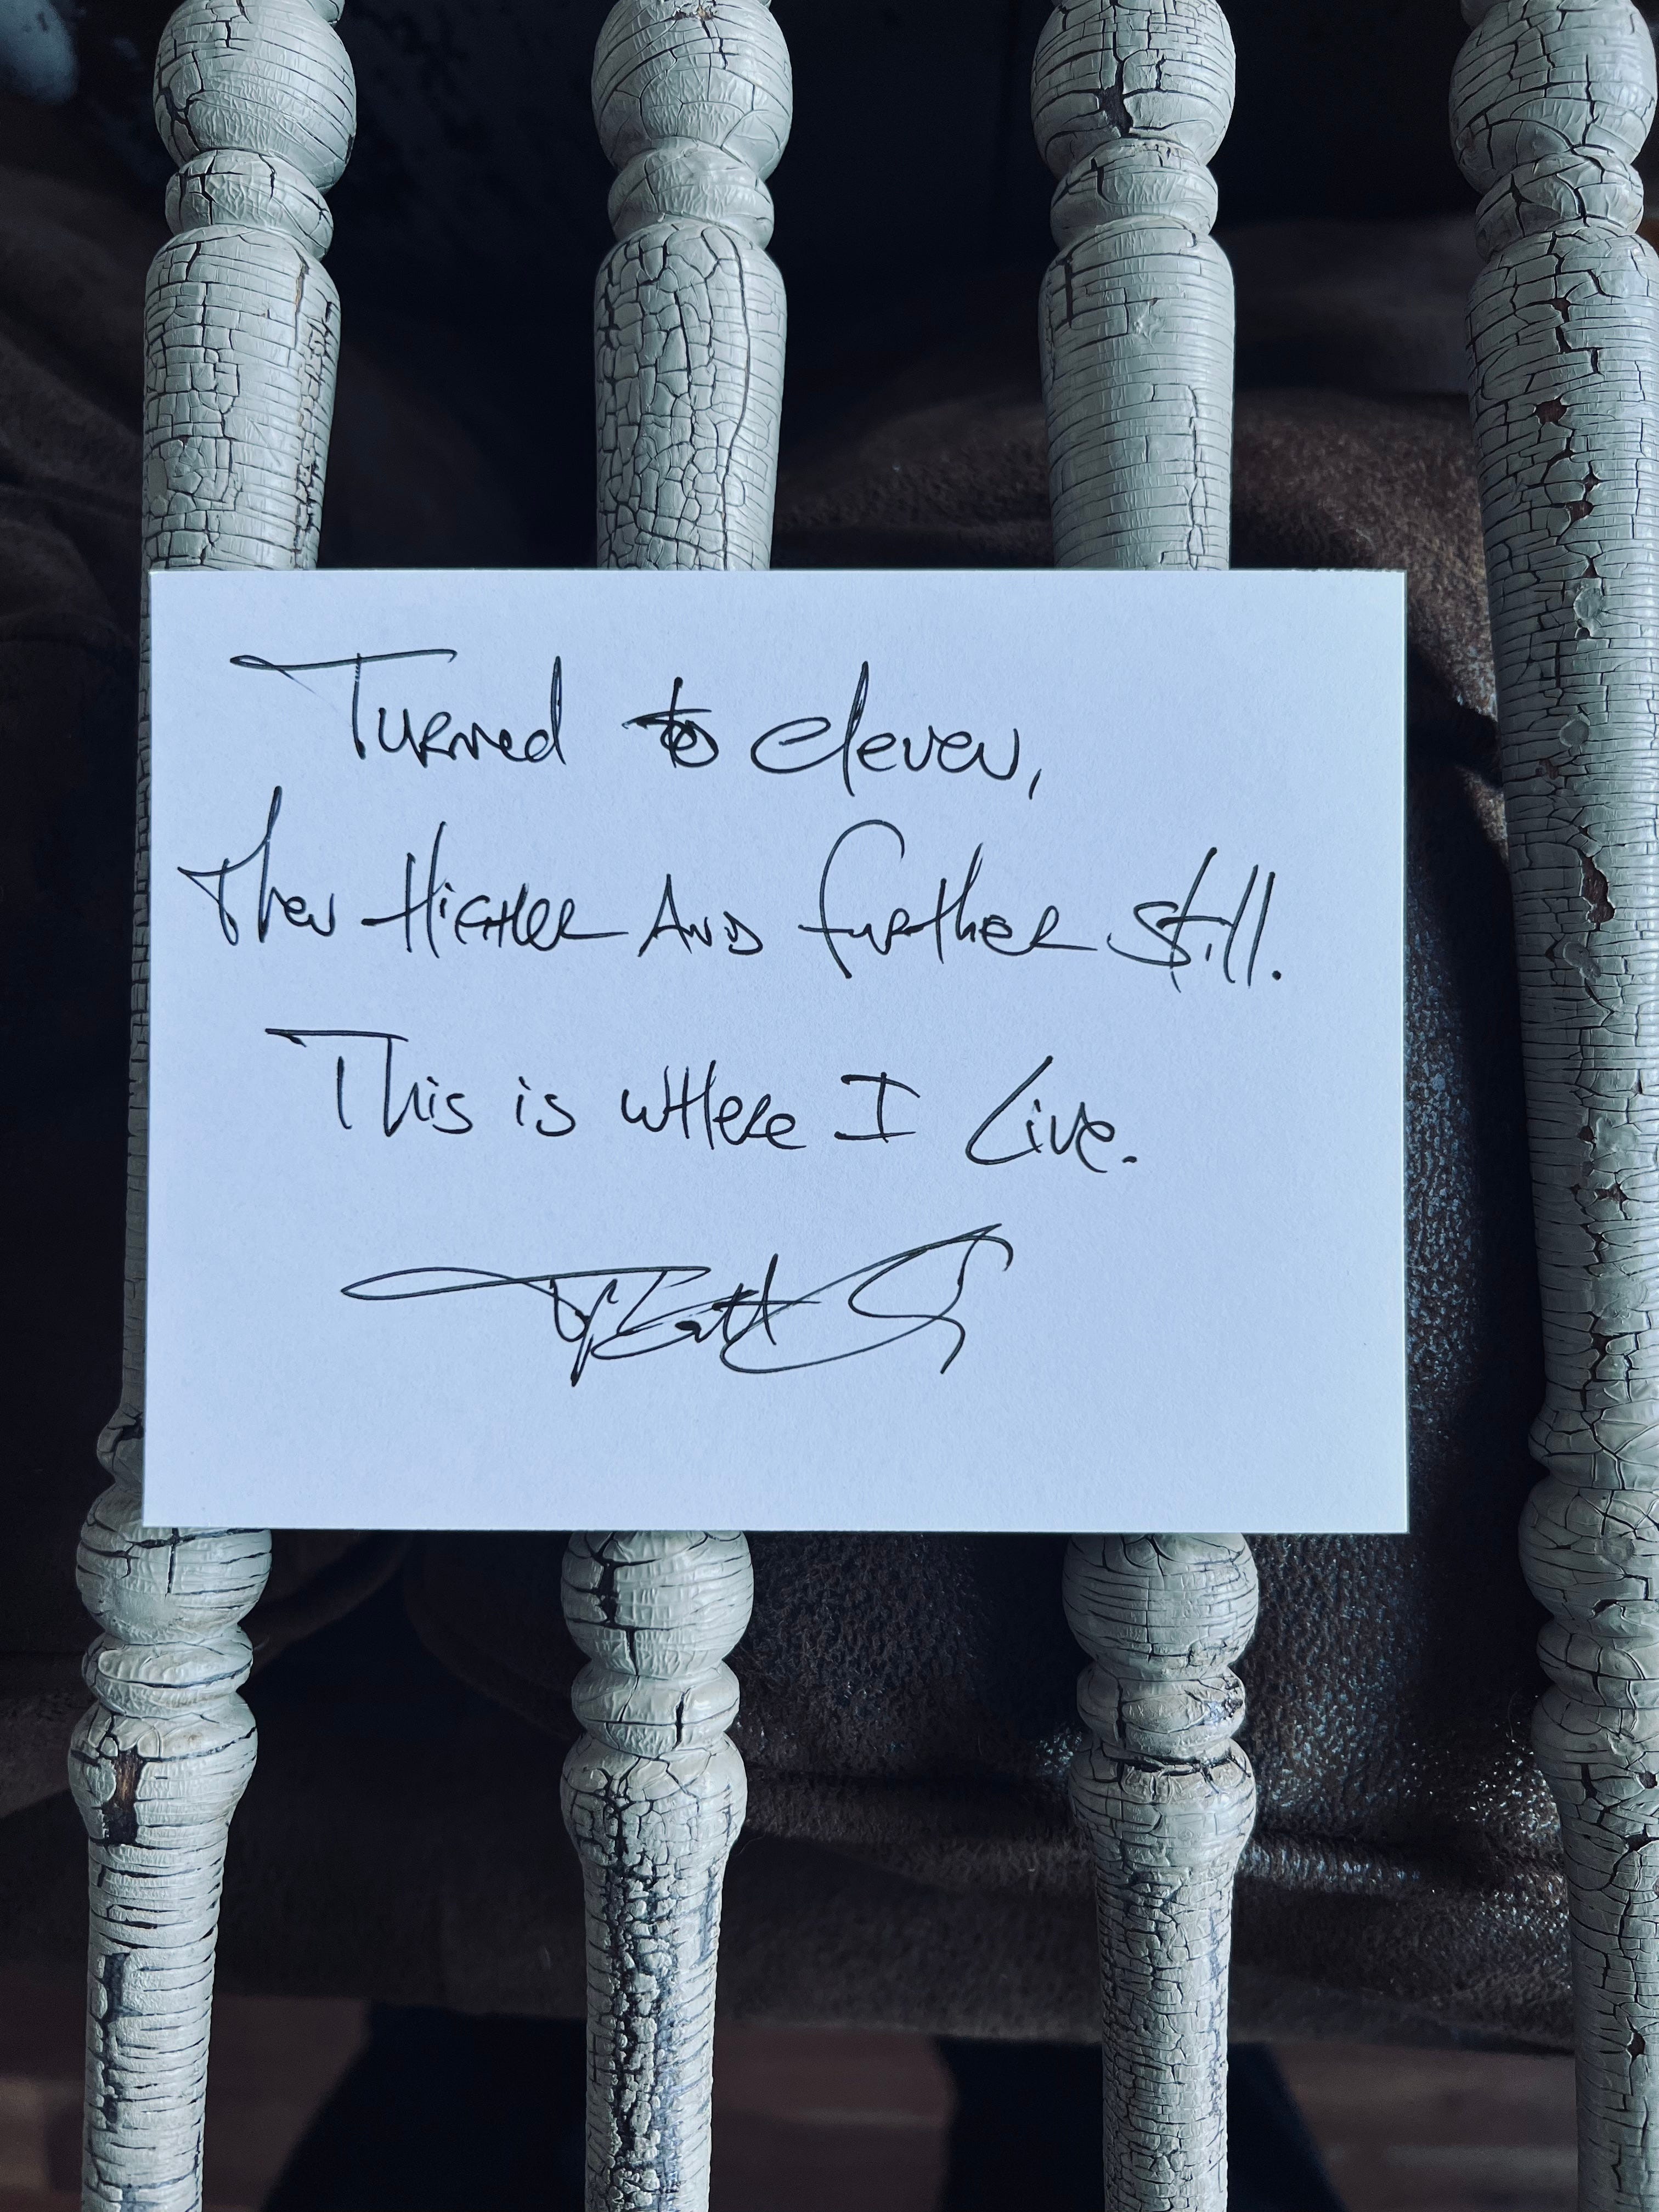 Turned to eleven,
then Higher And further still.
This is where I Live.